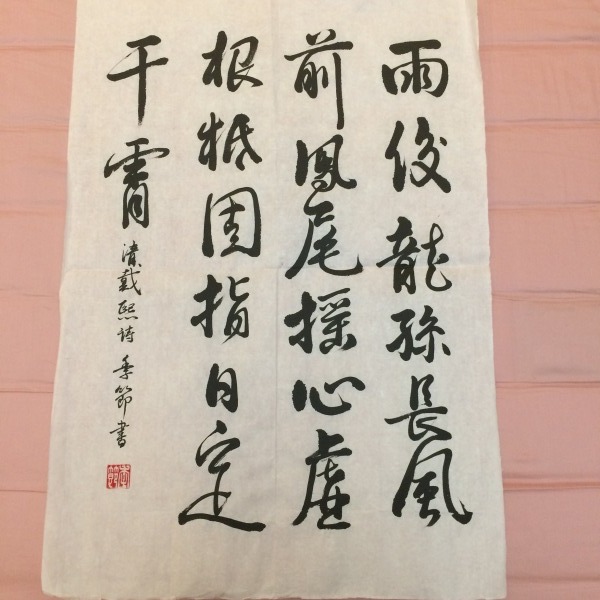 雨後龍孫長風
前鳳尾摇心虛
根柢固指日定
干霄
清戴熙詩 季節書